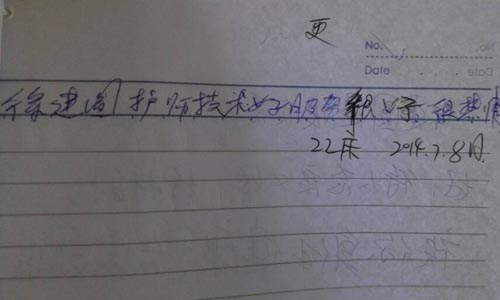 更
No.
Date
徐建国护师技术好服务很好很热情
22床 2014.7.8日